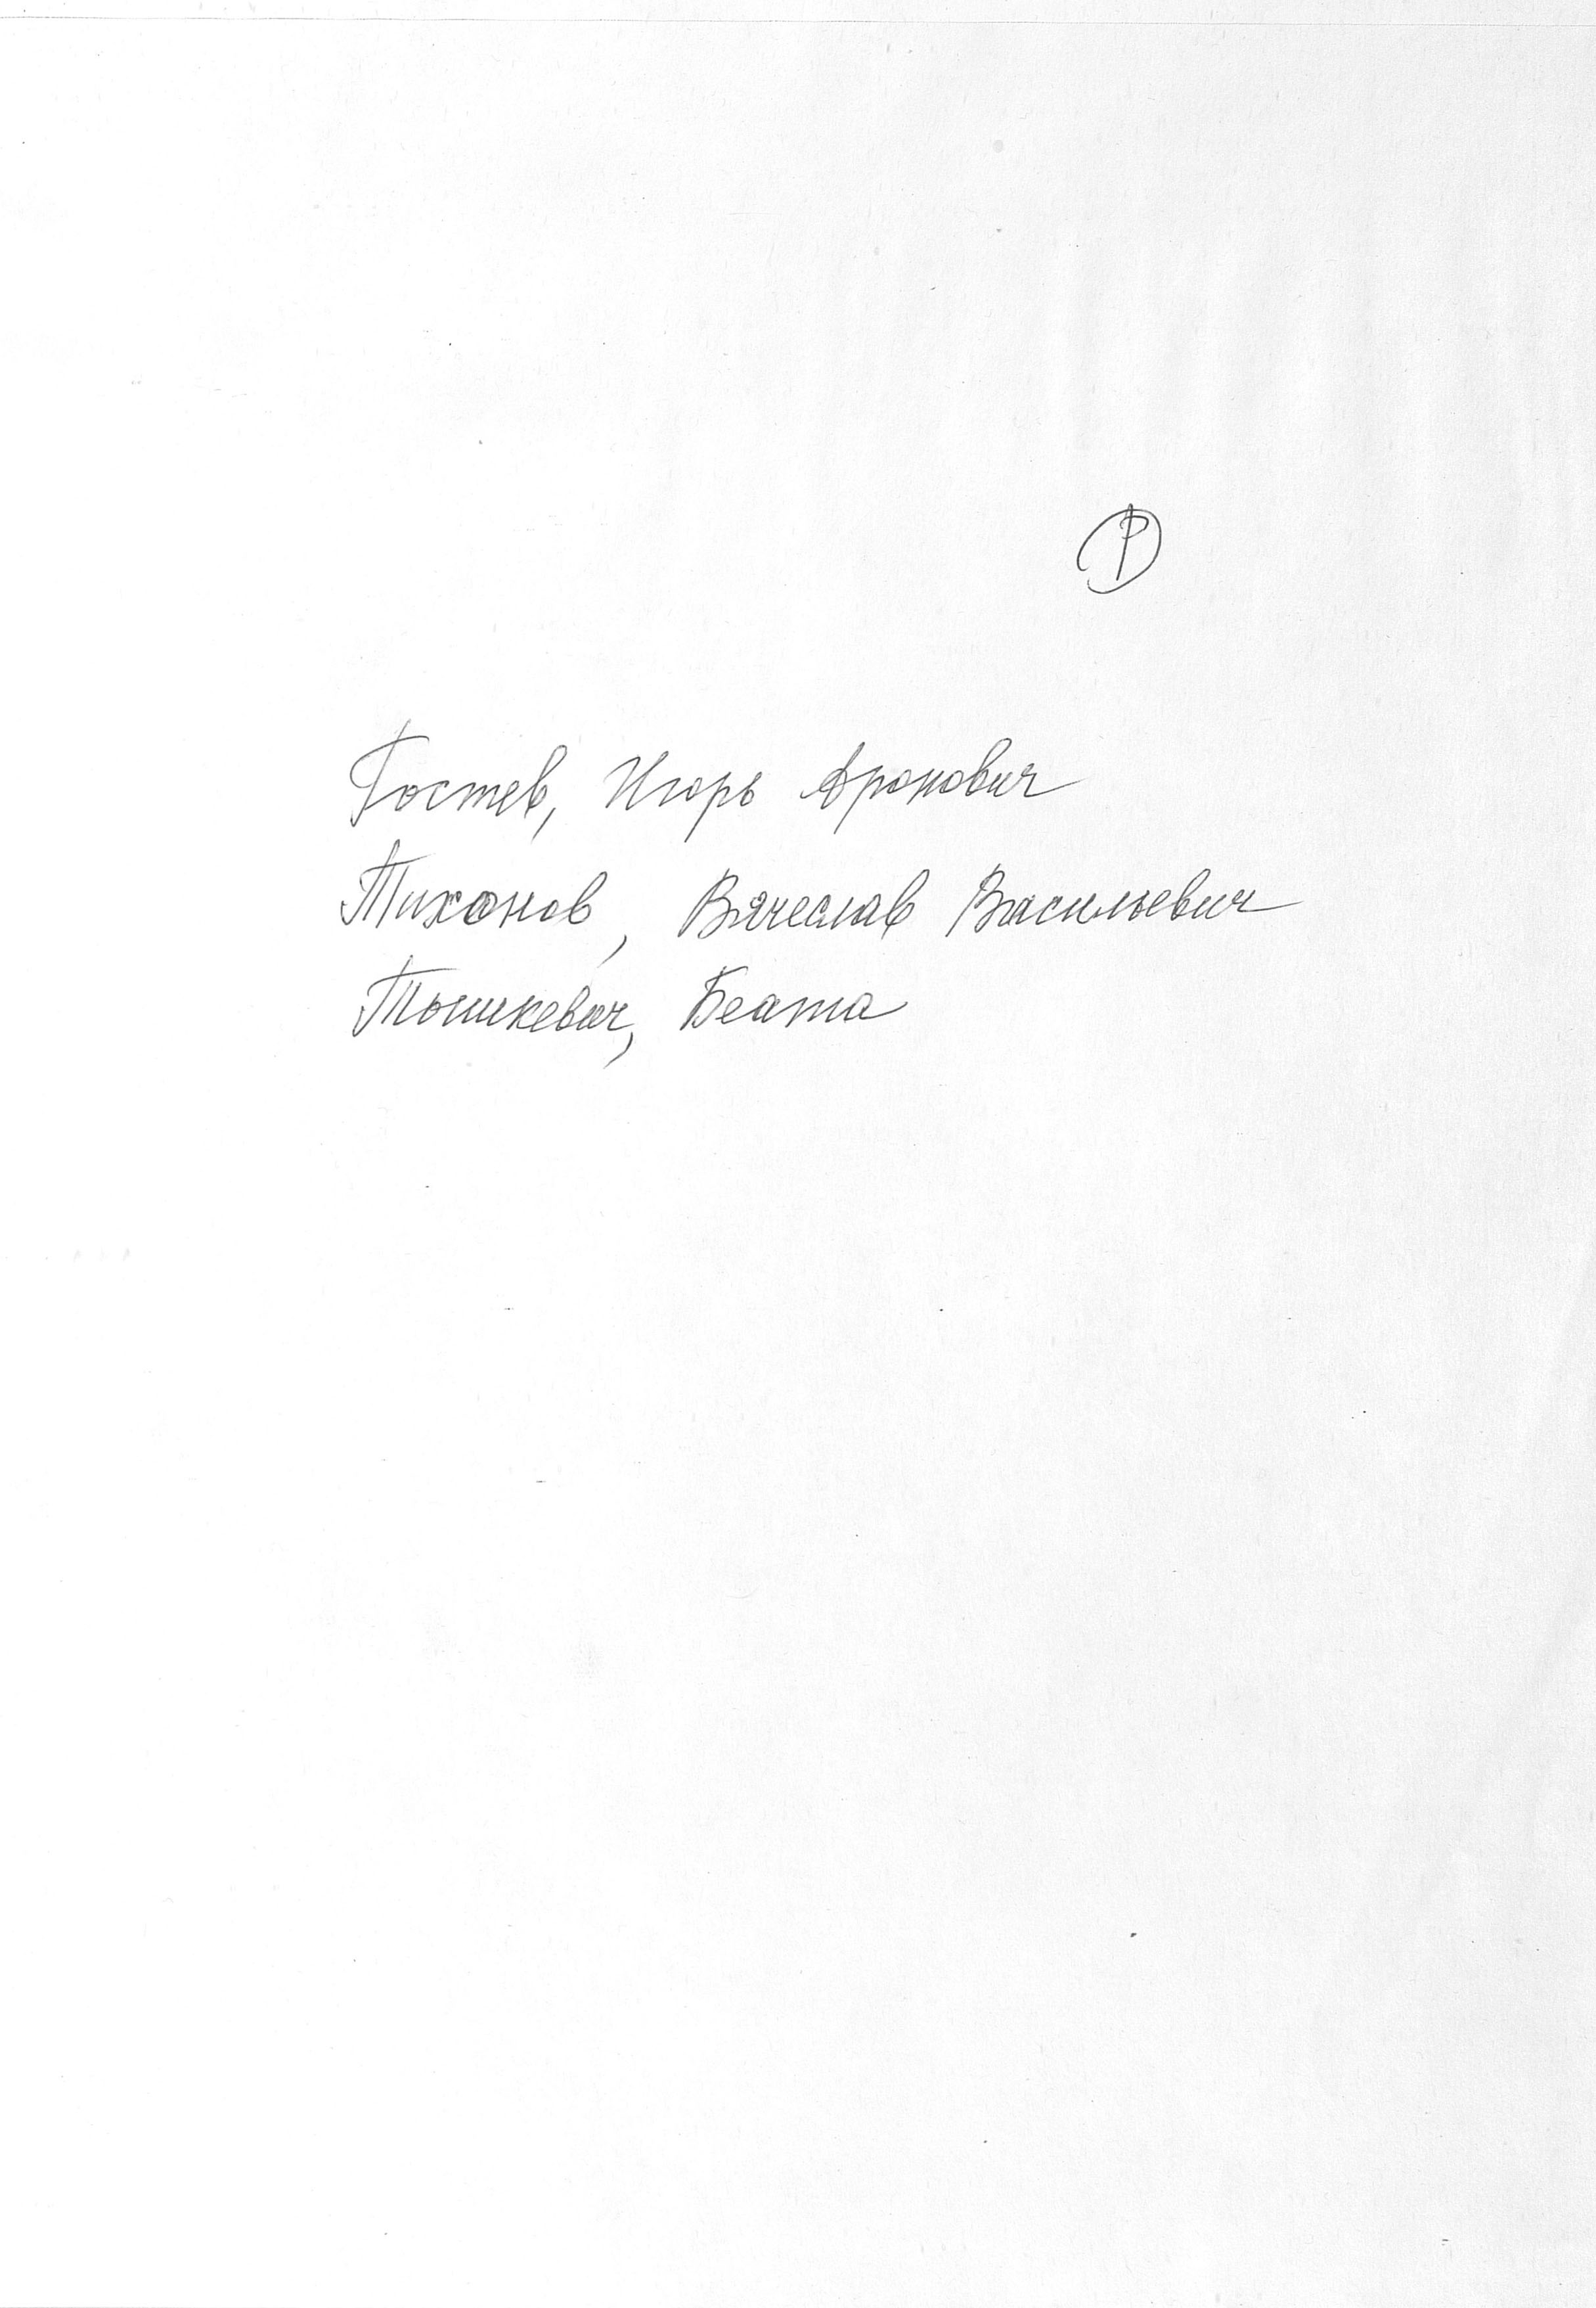 Р
Гостев, Игорь Аронович
Тихонов, Вячеслав Васильевич
Тышкевич, Беата